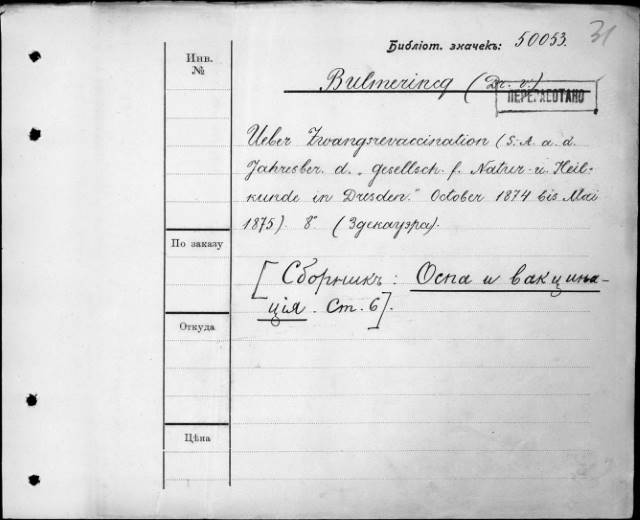 31
Библіот. значекъ: 50053.
Инв.
№
Bulmerincq (Dr. v.)
ПЕРЕРАБОТАНО
Ueber Zwangsrevaccination (S. A. a. d.
Jahresber. d. „Gesellsch. f. Natur- u. Heil-
kunde in Dresden." October 1874 bis Mai
1875). 8°. (Эдекауэра).
По заказу
[Сборникъ: Оспа и вакцина-
ція. Ст. 6].
Откуда
Цѣна